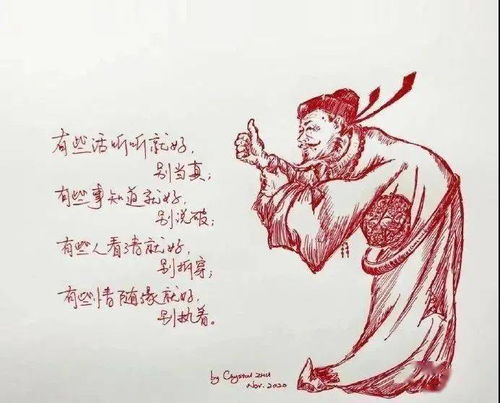 有些话听听就好,
别当真;
有些事知道就好,
别说破;
有些人看清就好,
别拆穿;
有些情随缘就好,
别执着。
by Crystal ZHU
Nov. 2020